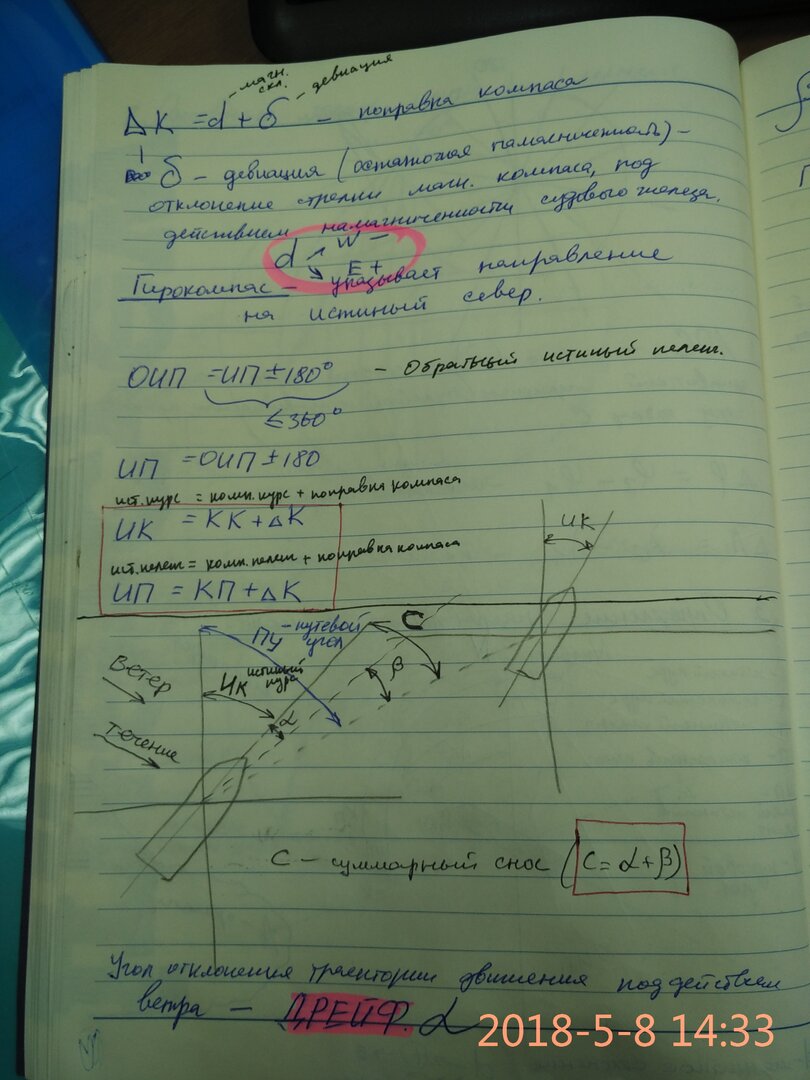 магн. скл. девиация
ΔK = d + δ - поправка компаса
δ - девиация (остаточная намагниченность) -
отклонение стрелки магн. компаса, под
действием намагниченности судового железа.
d W -
E +
Гирокомпас - указывает направление
на истиный север.
ОИП = ИП ± 180° - Обратный истиный пеленг.
≤ 360°
ИП = ОИП ± 180
ист. курс = комп. курс + поправка компаса
ИК = КК + ΔК
ист. пеленг = комп. пеленг + поправка компаса
ИП = КП + ΔК
ИК
ПУ - путевой угол
C
Ветер
ИК истиный курс
β
α
Течение
С - суммарный снос (C = α + β)
Угол отклонения траектории движения под действием
ветра - ДРЕЙФ. α
2018-5-8 14:33